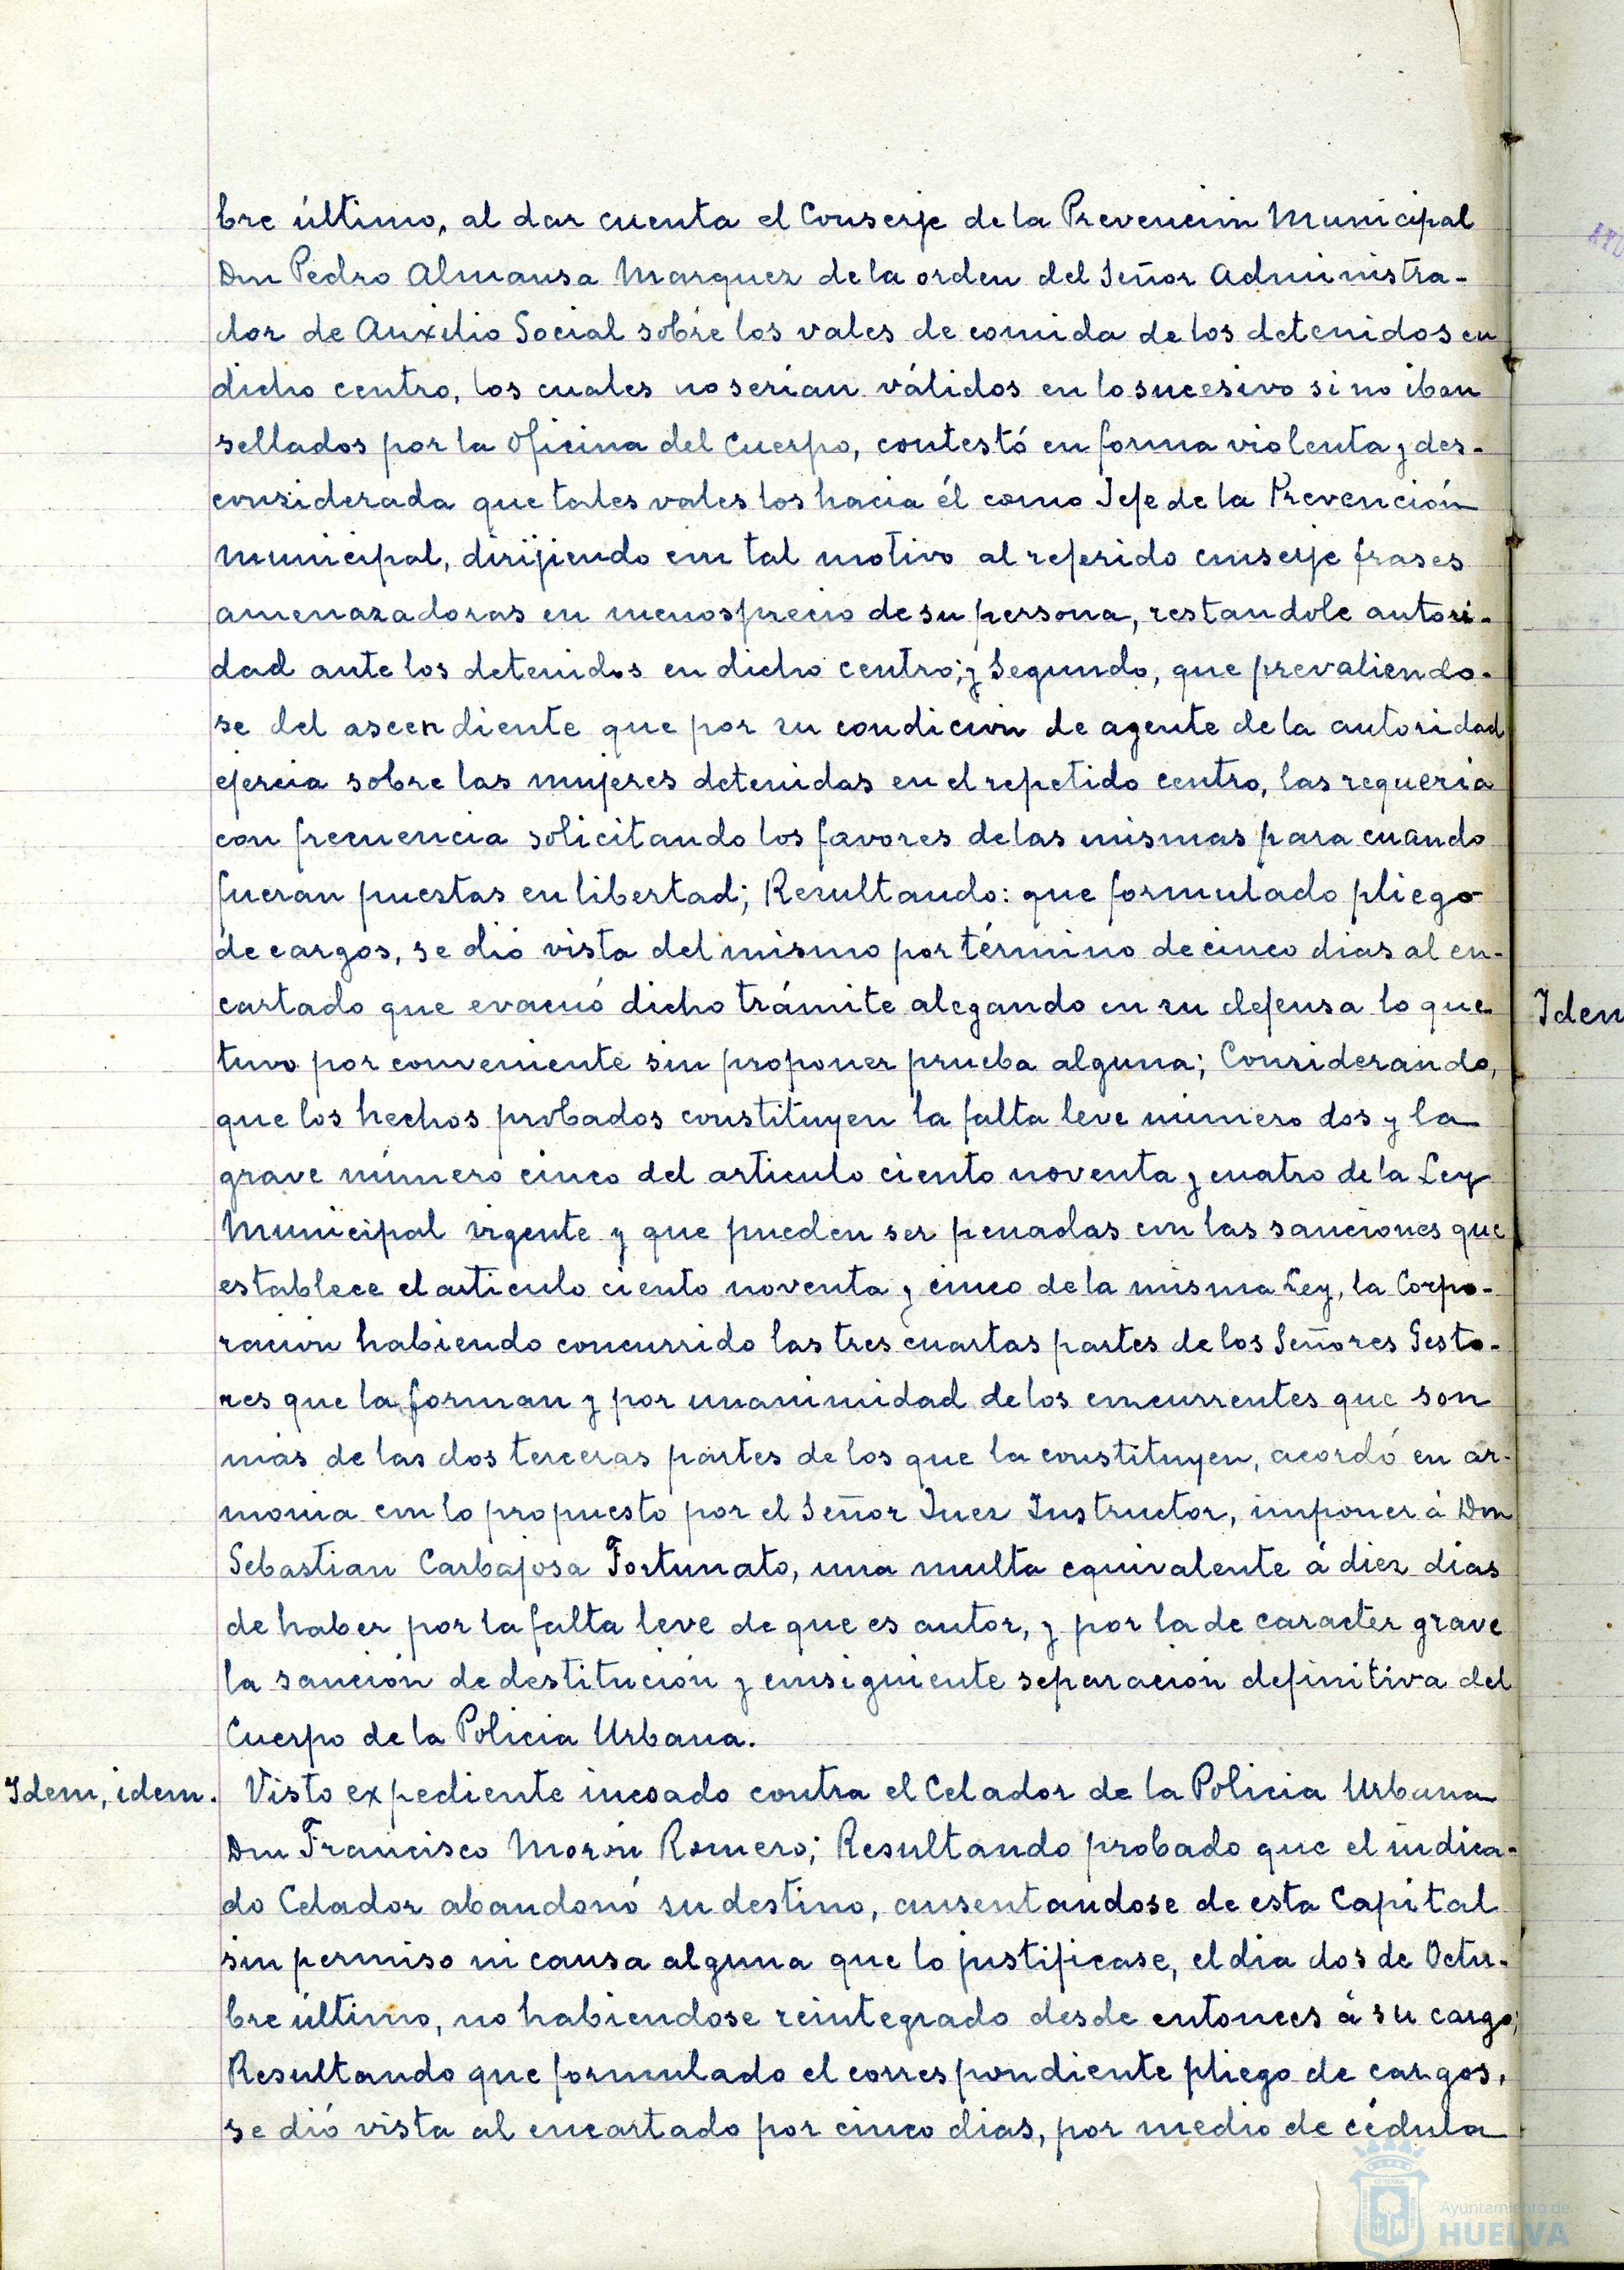 bre último, al dar cuenta el Conserje de la Prevención Municipal
Don Pedro Almansa Marquez de la orden del Señor Administra-
dor de Auxilio Social sobre los vales de comida de los detenidos en
dicho centro, los cuales no serían válidos en lo sucesivo si no iban
sellados por la Oficina del Cuerpo, contestó en forma violenta y des-
considerada que tales vales los hacia él como Jefe de la Prevención
Municipal, dirijiendo con tal motivo al referido conserje frases
amenazadoras en menosprecio de su persona, restandole autori-
dad ante los detenidos en dicho centro; y Segundo, que prevaliendo-
se del ascendiente que por su condición de agente de la autoridad
ejercia sobre las mujeres detenidas en el repetido centro, las requeria
con frecuencia solicitando los favores de las mismas para cuando
fueran puestas en libertad; Resultando: que formulado pliego
de cargos, se dió vista del mismo por término de cinco dias al en-
cartado que evacuó dicho trámite alegando en su defensa lo que
tuvo por conveniente sin proponer prueba alguna; Considerando,
que los hechos probados constituyen la falta leve número dos y la
grave número cinco del articulo ciento noventa y cuatro de la Ley
Municipal vigente y que pueden ser penadas con las sanciones que
establece el articulo ciento noventa y cinco de la misma Ley, la Corpo-
ración habiendo concurrido las tres cuartas partes de los Señores Gesto-
res que la forman y por unanimidad de los concurrentes que son
más de las dos terceras partes de los que la constituyen, acordó en ar-
monia con lo propuesto por el Señor Juez Instructor, imponer á Don
Sebastian Carbajosa Fortunato, una multa equivalente á diez dias
de haber por la falta leve de que es autor, y por la de caracter grave
la sanción de destitución y consiguiente separación definitiva del
Cuerpo de la Policia Urbana.
Idem, idem. Visto expediente incoado contra el Celador de la Policia Urbana
Don Francisco Morón Romero; Resultando probado que el indica-
do Celador abandonó su destino, ausentandose de esta Capital
sin permiso ni causa alguna que lo justificase, el dia dos de Octu-
bre último, no habiendose reintegrado desde entonces á su cargo;
Resultando que formulado el correspondiente pliego de cargos,
se dió vista al encartado por cinco dias, por medio de cédula
Idem
Ayuntamiento de
HUELVA